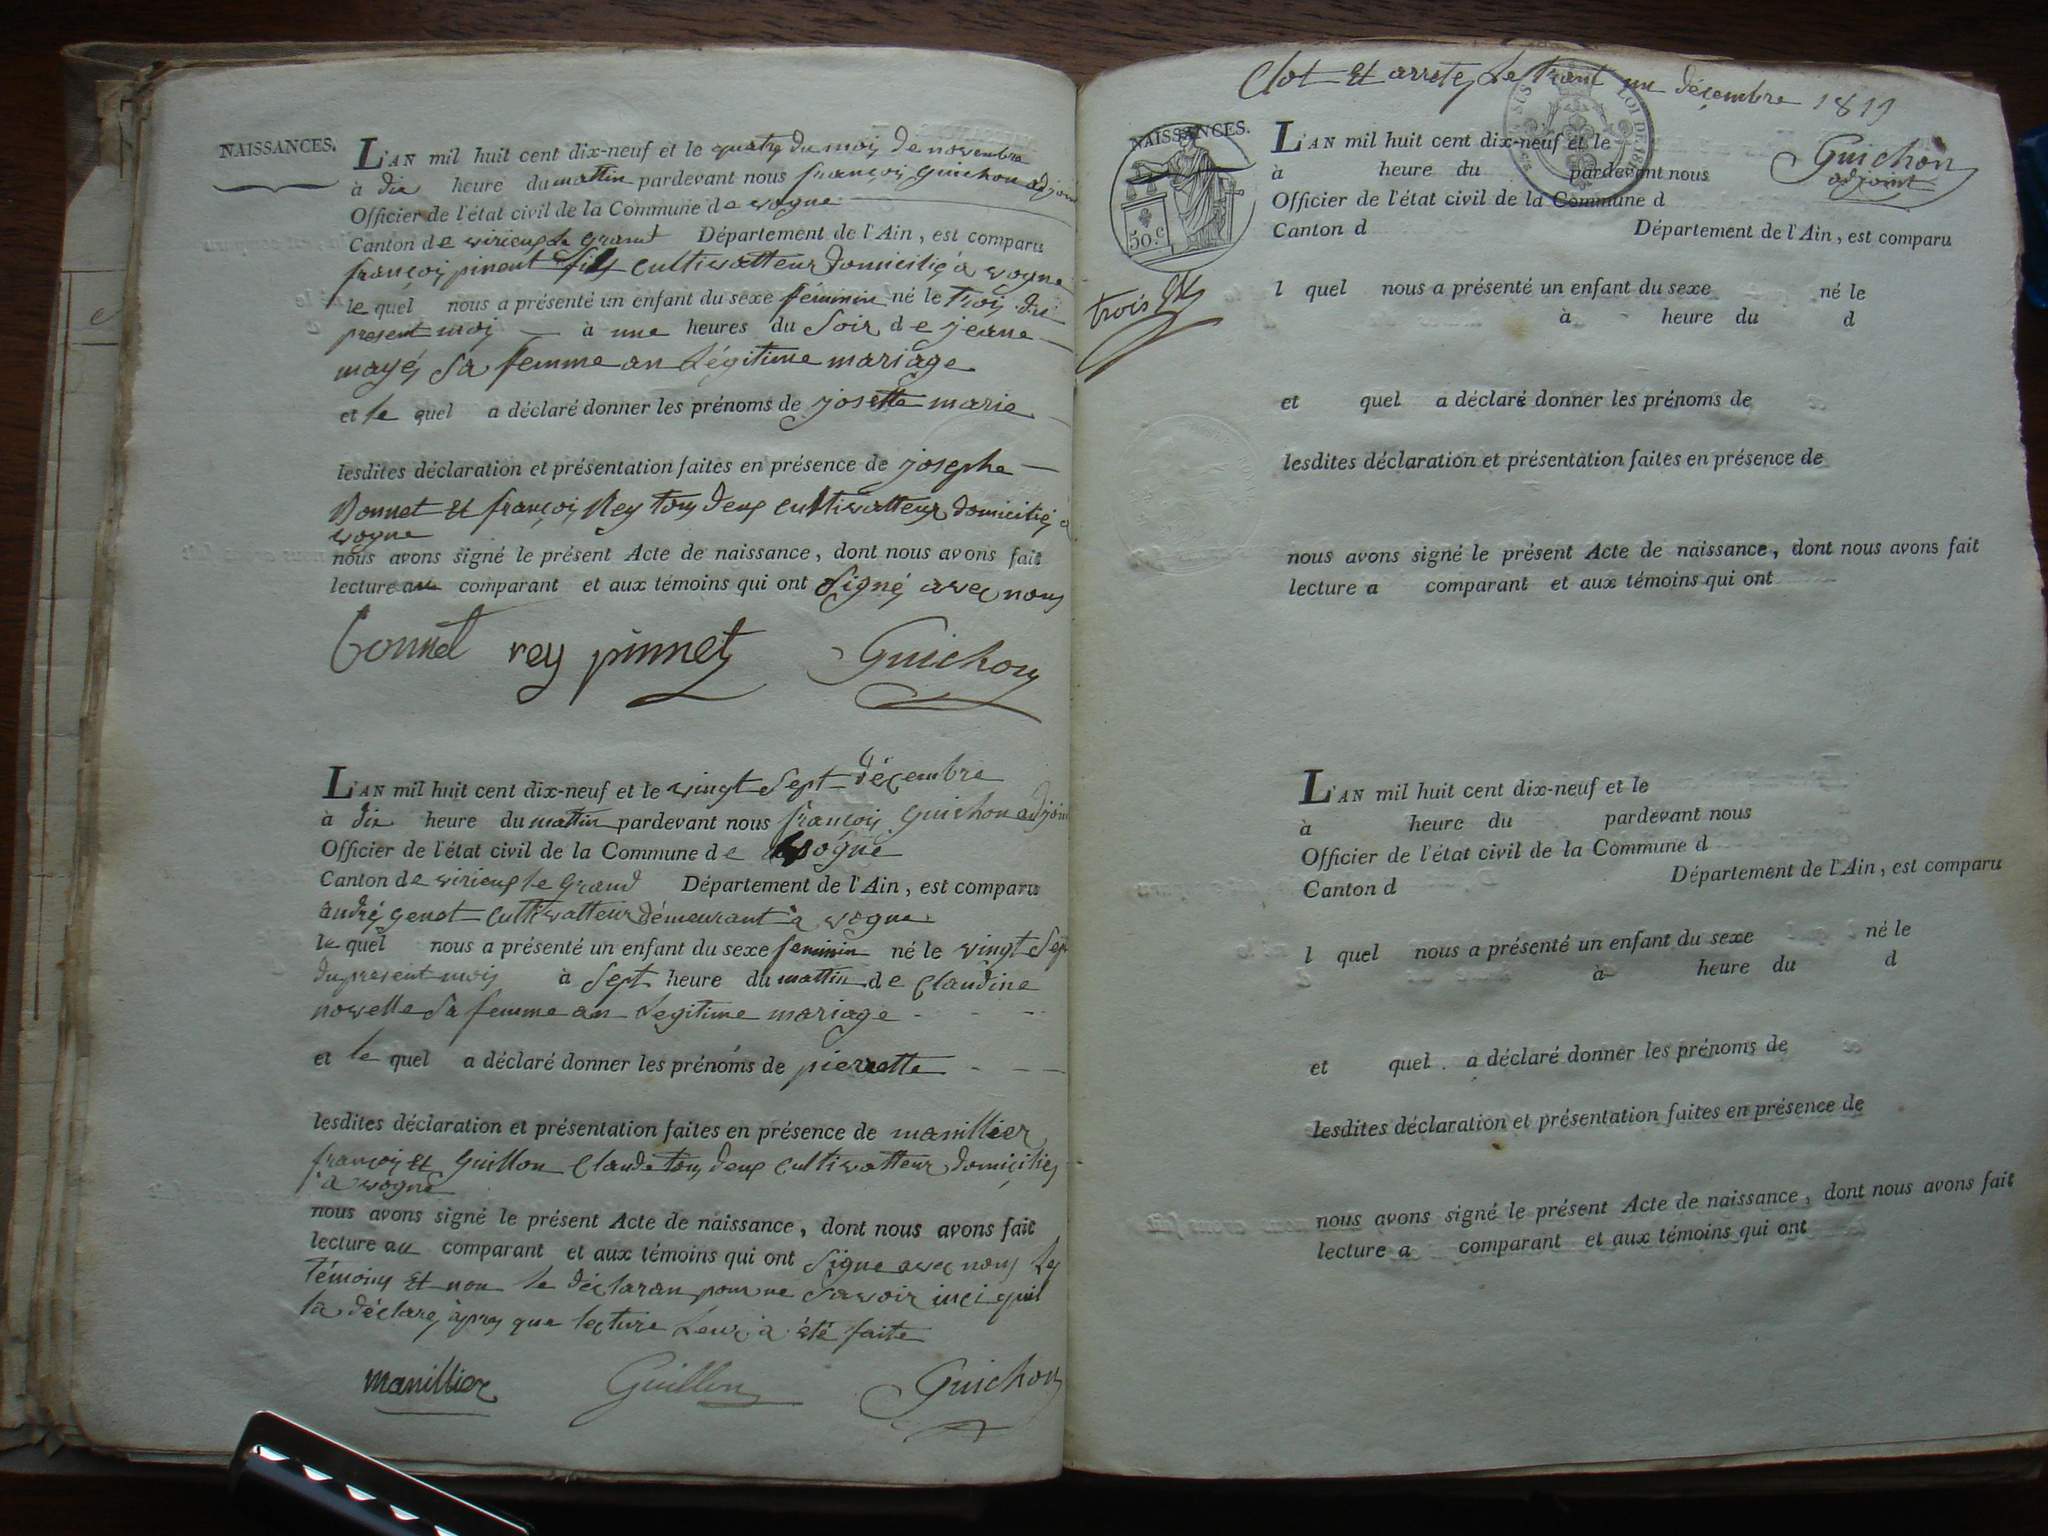 NAISSANCES.
L'AN mil huit cent dix-neuf et le quatre du mois de novembre
à dix heure du mattin pardevant nous françois Guichon adjoin
Officier de l'état civil de la Commune de vogne
Canton de virieux le Grand Département de l'Ain, est comparu
françois pinent fils cultivatteur domicilié a vogne
le quel nous a présenté un enfant du sexe féminin né le trois du
present mois à une heures du soir de jeane
mayé sa femme an Légitime mariage
et le quel a déclaré donner les prénoms de josette marie
lesdites déclaration et présentation faites en présence de josephe
Bonnet Et françois Rey tous deux cultivatteurs domiciliés à
vogne
nous avons signé le présent Acte de naissance, dont nous avons fait
lecture au comparant et aux témoins qui ont signé avec nous
bonnet rey pinnet Guichon
L'AN mil huit cent dix-neuf et le vingt sept décembre
à dix heure du mattin pardevant nous françois Guichon adjoin
Officier de l'état civil de la Commune de vogne
Canton de virieux le Grand Département de l'Ain, est comparu
andré genet cultivatteur démeurant à vogne
le quel nous a présenté un enfant du sexe feminin né le vingt sep
du present mois à sept heure du mattin de Claudine
novelle sa femme an Legitime mariage
et le quel a déclaré donner les prénoms de pierrette
lesdites déclaration et présentation faites en présence de manillier
françois et Guillon Claude tous deux cultivatteur domiciliés
a vogne
nous avons signé le présent Acte de naissance, dont nous avons fait
lecture au comparant et aux témoins qui ont signe avec nous Les
témoins Et non le déclaran pour ne savoir inci quil
la déclaré àpres que lecture Leur à été faite
manillier Guillon Guichon
Clot Et arreté Le trent un décembre 1819
NAISSANCES.
L'AN mil huit cent dix-neuf et le
Guichon
adjoint
à heure du pardevant nous
Officier de l'état civil de la Commune d
50.c
Canton d Département de l'Ain, est comparu
l quel nous a présenté un enfant du sexe né le
trois
à heure du d
et quel a déclaré donner les prénoms de
lesdites déclaration et présentation faites en présence de
nous avons signé le présent Acte de naissance, dont nous avons fait
lecture a comparant et aux témoins qui ont
L'AN mil huit cent dix-neuf et le
à heure du pardevant nous
Officier de l'état civil de la Commune d
Canton d Département de l'Ain, est comparu
l quel nous a présenté un enfant du sexe né le
à heure du d
et quel a déclaré donner les prénoms de
lesdites déclaration et présentation faites en présence de
nous avons signé le présent Acte de naissance, dont nous avons fait
lecture a comparant et aux témoins qui ont